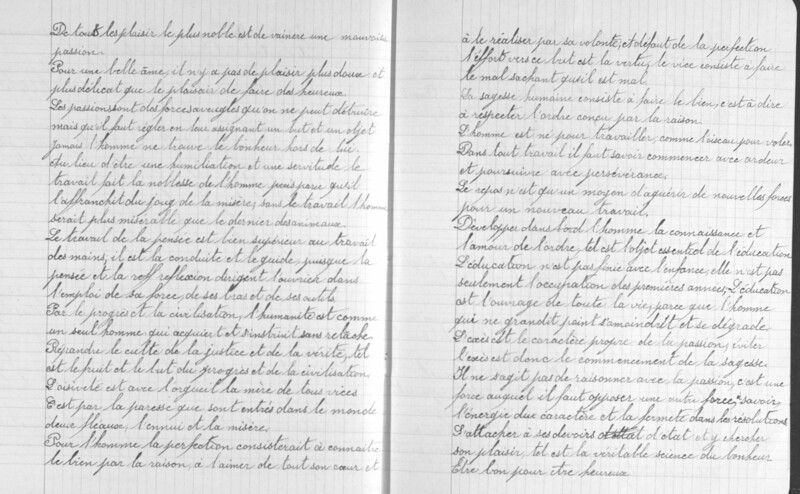 De tout les plaisir le plus noble est de vaincre une mauvaise
passion.
Pour une belle âme, il n'y a pas de plaisir plus doux et
plus délicat que le plaisir de faire des heureux
Les passions sont des forces aveugles qu'on ne peut détruire
mais qu'il faut régler en leur assignant un but et un objet
Jamais l'homme ne trouve le bonheur hors de lui.
Au lieu d'être une humiliation et une servitude le
travail fait la noblesse de l'homme puisque qu'il
l'affranchit du joug de la misère, sans le travail l'homme
serait plus misérable que le dernier des animaux.
Le travail de la pensée est bien supérieur au travail
des mains, il est la conduite et le guide, puisque la
pensée et la reflexion dirigent l'ouvrier dans
l'emploi de sa force, de ses bras et de ses outils
Par le progrès et la civilisation, l'humanité est comme
un seul homme qui acquiert et s'instruit sans relache
Répandre le culte de la justice et de la vérité, tel
est le fruit et le but du progrès et de la civilisation.
L'oisivité est avec l'orgueil la mère de tous vices
C'est par la paresse que sont entrés dans le monde
deux fléaux, l'ennui et la misère.
Pour l'homme la perfection consisterait à connaitre
le bien par la raison, à l'aimer de tout son cœur et
à le réaliser par sa volonté, et défaut de la perfection
l'effort vers ce but est la vertu, le vice consiste à faire
le mal sachant qu'il est mal.
La sagesse humaine consiste à faire le bien, c'est à dire
à respecter l'ordre conçu par la raison.
L'homme est né pour travailler, comme l'oiseau pour voler.
Dans tout travail il faut savoir commencer avec ardeur
et poursuivre avec persévérance.
Le repos n'est qu'un moyen d'aquérir de nouvelles forces
pour un nouveau travail.
Développer dans l'homme la connaissance et
l'amour de l'ordre, tel est l'objet essentiel de l'éducation
L'éducation n'est pas finie avec l'enfance, elle n'est pas
seulement l'occupation des premières années, L'éducation
est l'ouvrage de toute la vie, parce que l'homme
qui ne grandit point s'amoindrit et se dégrade
L'excès est le caractère propre de la passion, éviter
l'excès est donc le commencement de la sagesse.
Il ne s'agit pas de raisonner avec la passion, c'est une
force auquel il faut opposer une autre force, savoir
l'énergie du caractère et la fermeté dans les résolutions
S'attacher à ses devoirs d'état et y chercher
son plaisir, tel est la véritable science du bonheur
Etre bon pour etre heureux